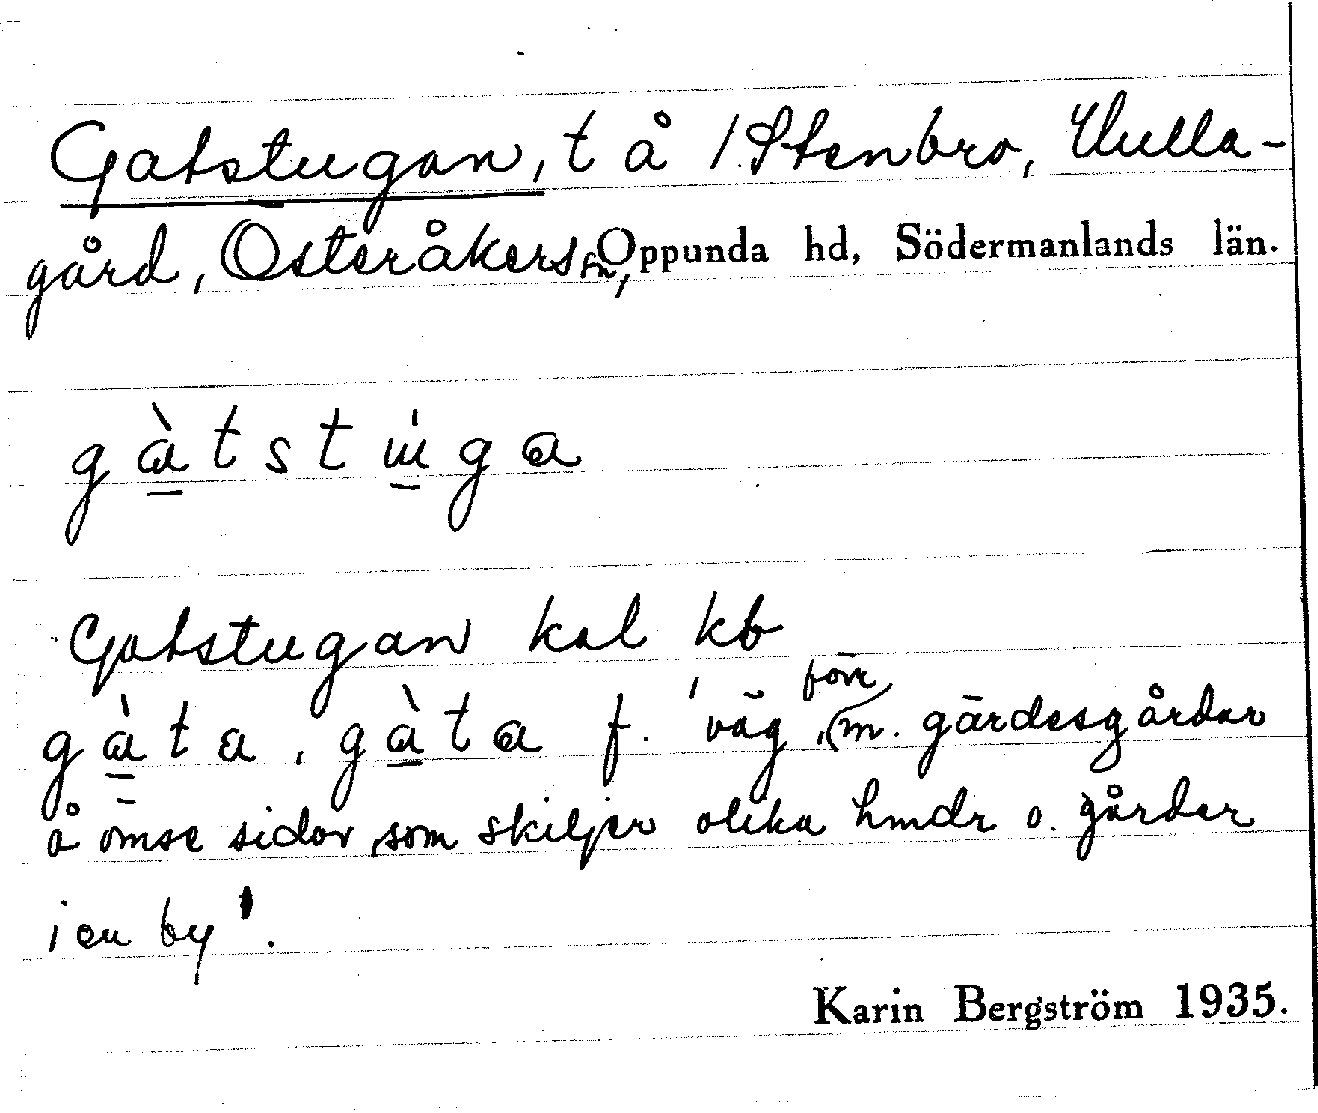 Gatstugan, t å /. Stenbro, Ulla-
gård, Österåkers sn, Oppunda hd, Södermanlands län.
gàtstu̇ga
Gatstugan kal kb
gàta, gàta f. 'väg, förr m. gärdesgårdar
å ömse sidor, som skiljer olika hmdr o. gårder
i en by'.
Karin Bergström 1935.